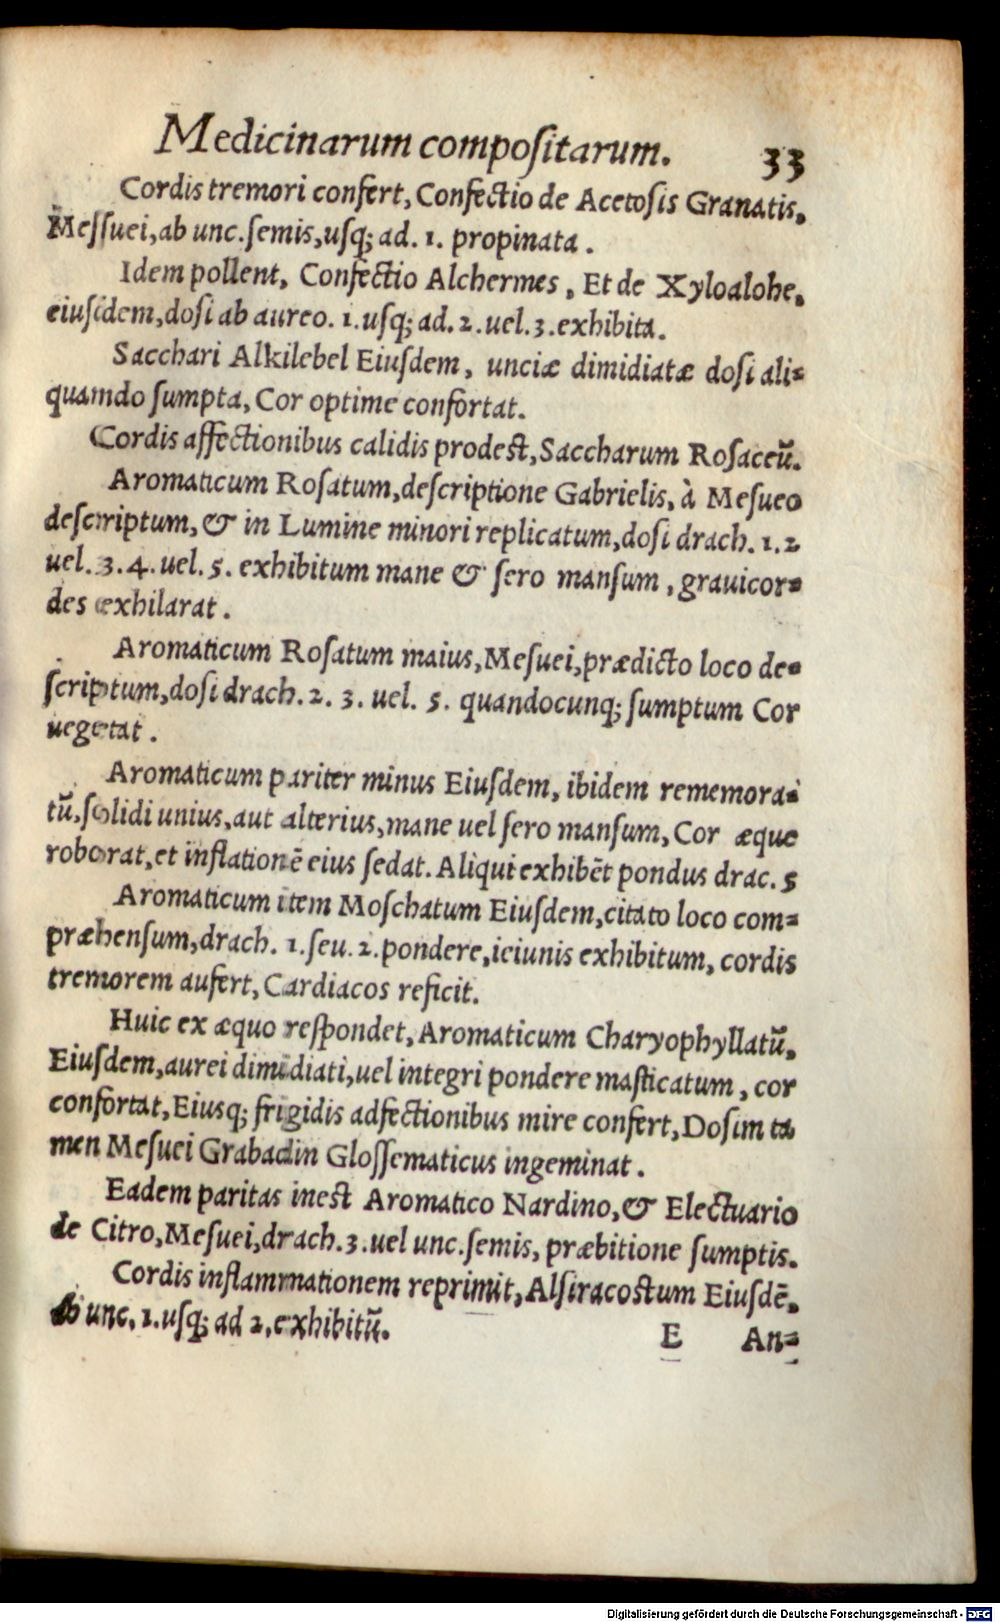 Medicinarum compoſitarum. 33
Cordis tremori confert, Confectio de Acetoſis Granatis,
Meſſuei, ab unc. ſemis, uſq; ad. 1. propinata .
Idem pollent, Confectio Alchermes , Et de Xyloalohe,
eiuſdem, doſi ab aureo. 1. uſq; ad. 2. uel. 3. exhibita.
Sacchari Alkilebel Eiuſdem , unciæ dimidiatæ doſi ali=
quamdo ſumpta, Cor optime confortat.
Cordis affectionibus calidis prodeſt, Saccharum Roſaceũ.
Aromaticum Roſatum, deſcriptione Gabrielis, à Meſueo
deſcriptum, & in Lumine minori replicatum, doſi drach. 1. 2
uel. 3. 4. uel. 5. exhibitum mane & ſero manſum , grauicor=
des exhilarat .
Aromaticum Roſatum maius, Meſuei, prædicto loco de=
ſcriptum, doſi drach. 2. 3. uel. 5. quandocunq; ſumptum Cor
uegetat .
Aromaticum pariter minus Eiuſdem, ibidem rememora=
tũ, ſolidi unius, aut alterius, mane uel ſero manſum, Cor æque
roborat, et inflationẽ eius ſedat. Aliqui exhibẽt pondus drac. 5
Aromaticum item Moſchatum Eiuſdem, citato loco com=
præhenſum, drach. 1. ſeu. 2. pondere, ieiunis exhibitum, cordis
tremorem aufert, Cardiacos reficit.
Huic ex æquo reſpondet, Aromaticum Charyophyllatũ,
Eiuſdem, aurei dimidiati, uel integri pondere maſticatum , cor
confortat, Eiusq; frigidis adfectionibus mire confert, Doſim ta
men Meſuei Grabadin Gloſſematicus ingeminat .
Eadem paritas ineſt Aromatico Nardino, & Electuario
de Citro, Meſuei, drach. 3. uel unc. ſemis, præbitione ſumptis.
Cordis inflammationem reprimit, Alſiracoſtum Eiuſdẽ,
ab unc. 1. uſq; ad 2. exhibitũ.
E An=
Digitalisierung gefördert durch die Deutsche Forschungsgemeinschaft - DFG